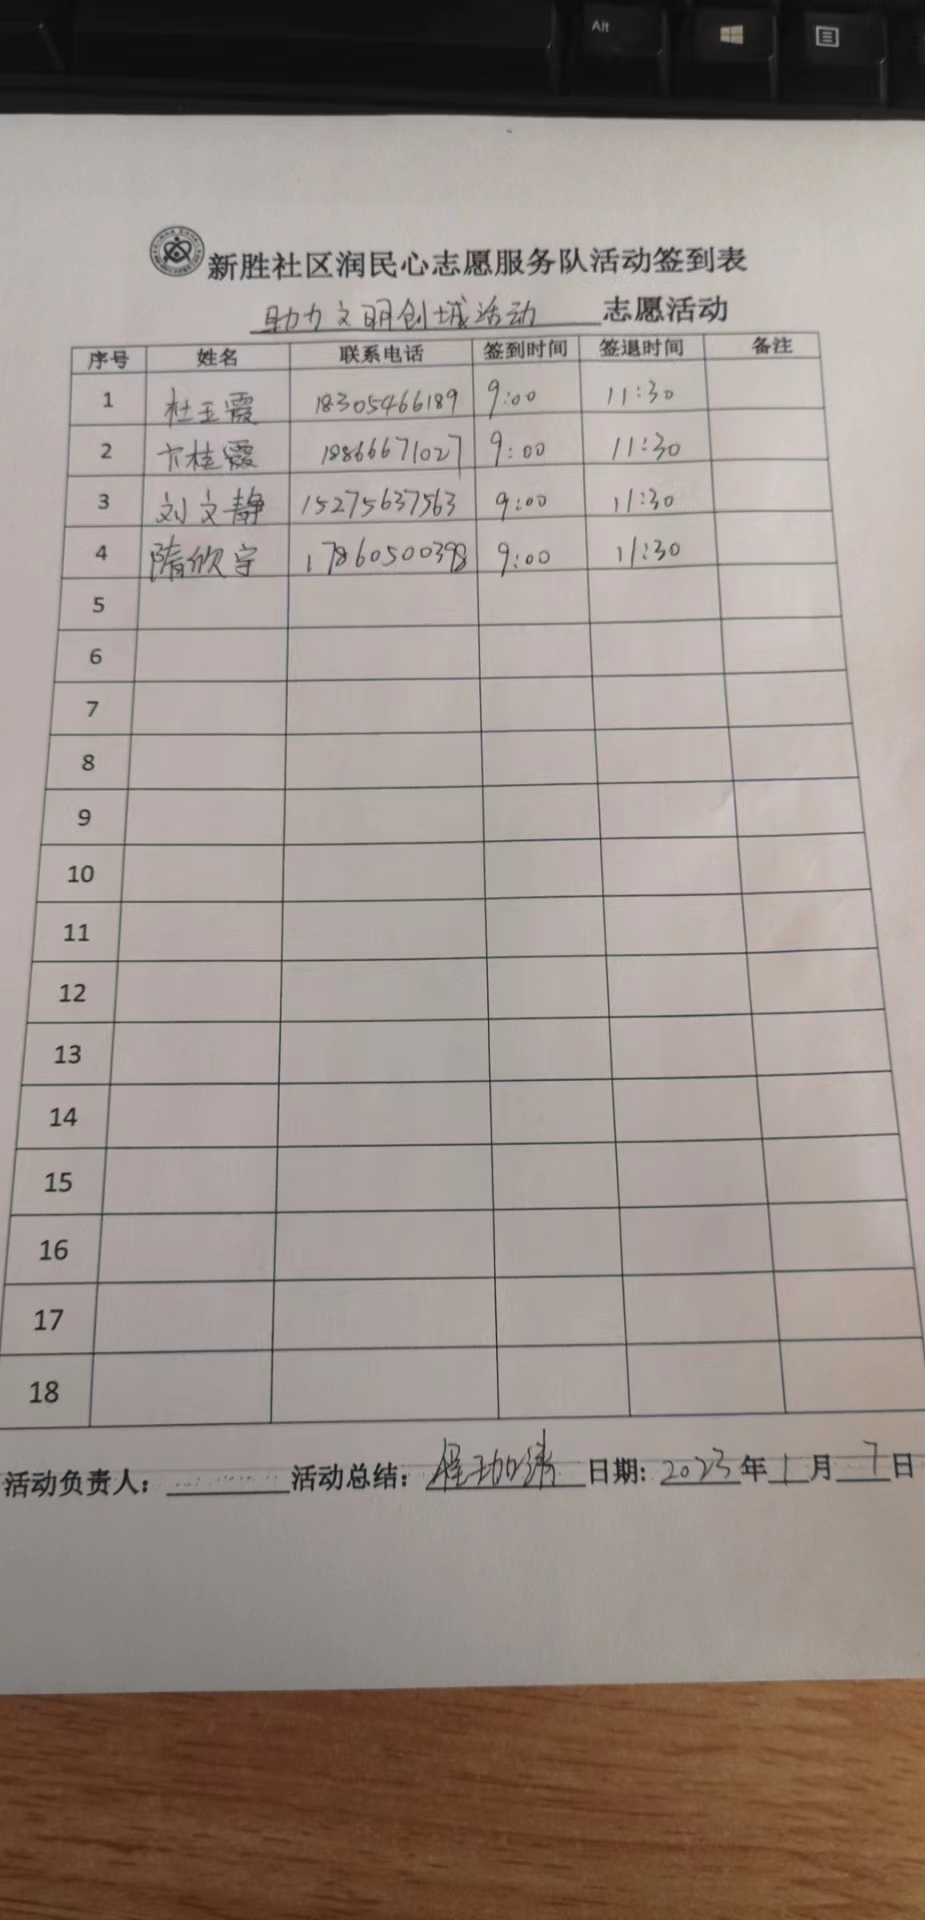 Alt
新胜社区润民心志愿服务队活动签到表
助力文明创城活动 志愿活动
序号 姓名 联系电话 签到时间 签退时间 备注
1 杜玉霞 18305466189 9:00 11:30
2 卞桂霞 18866671027 9:00 11:30
3 刘文静 15275637563 9:00 11:30
4 隋欣宇 17860500398 9:00 11:30
5
6
7
8
9
10
11
12
13
14
15
16
17
18
活动负责人: 活动总结: 日期: 2023年1月7日